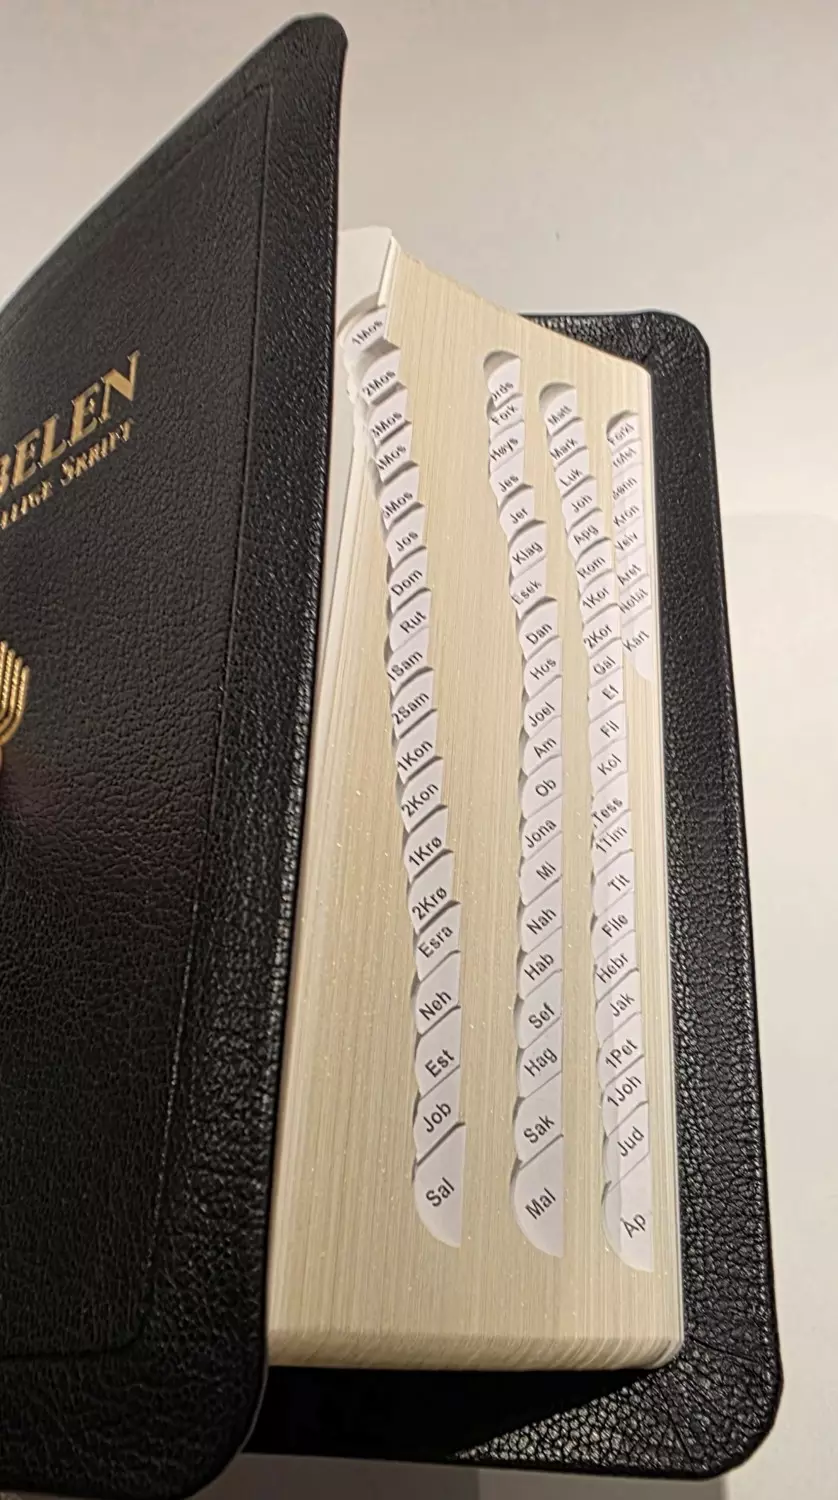 BELEN
SKRIFT
1Mos
2Mos
3Mos
Mos
5Mos
Jos
Dom
Rut
1Sam
2Sam
1Kon
2Kon
1Krø
2Krø
Esra
Neh
Est
Job
Sal
Fork
Høys
Jes
Jer
Klag
Esek
Dan
Hos
Joel
Am
Ob
Jona
Mi
Nah
Hab
Sef
Hag
Sak
Mal
Matt
Mark
Luk
Joh
Apg
Rom
1Kor
2Kor
Gal
Ef
Fil
Kol
1Tess
1Tim
Tit
File
Hebr
Jak
1Pet
1Joh
Jud
Åp
Kron
Året
Kart